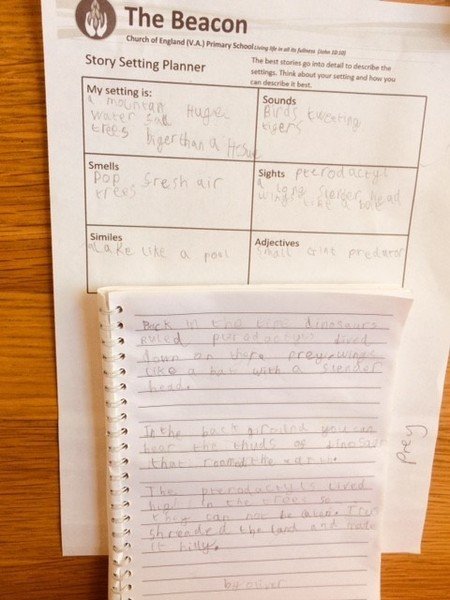 The Beacon
Church of England (V.A.) Primary School Living life in all its fullness (John 10:10)
Story Setting Planner
The best stories go into detail to describe the
settings. Think about your setting and how you
can describe it best.
My setting is:
a mountan
water fall Huger
trees bigerthan a House
Sounds
Birds tweeting
tigers
Smells
Pop fresh air
trees
Sights pterodactyl
a long slender head
wings like a bat
Similes
a Lake like a pool
Adjectives
small Gint predator
Back in the time dinosaurs
Ruled pterodactyls dived
down on there prey. wings
like a bat with a slender
head.
In the back giround you can
hear the thuds of dinosaur
that roamed the earth.
The pterodactyls lived
high in the trees so
they can not be eaten. Trees
shreaded the land and made
it hilly.
by oliver
prey